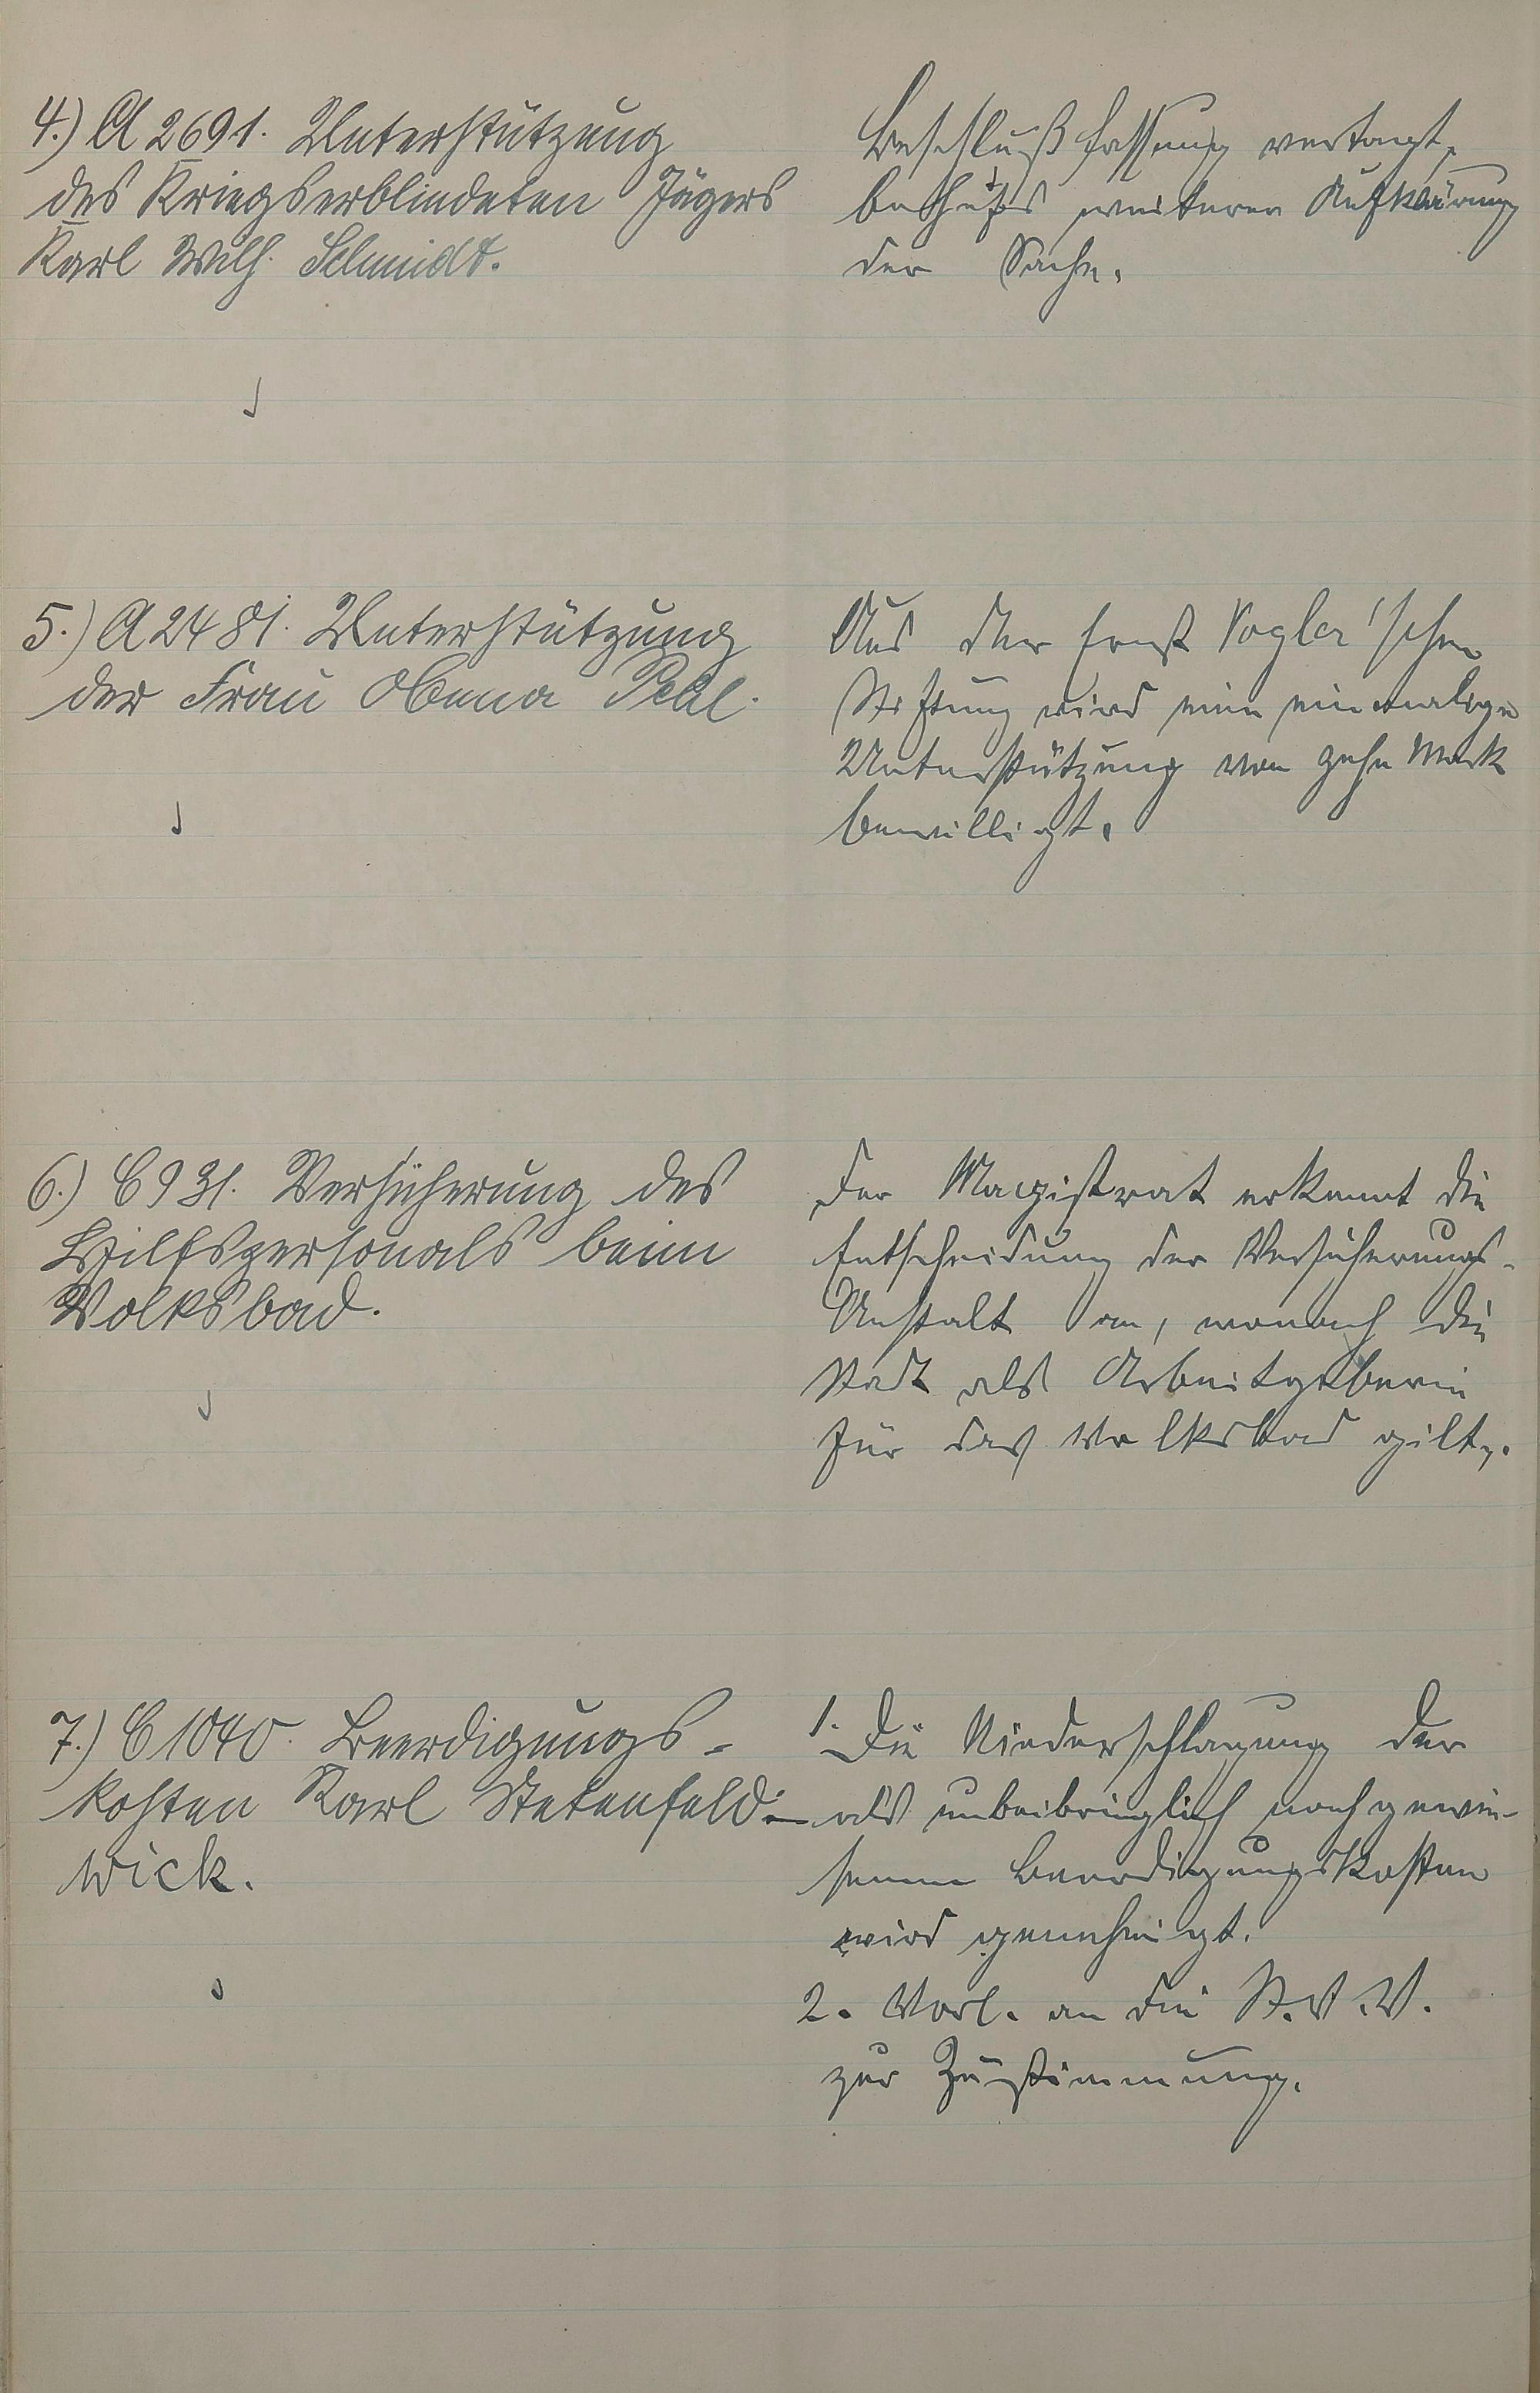 4.) A 2691. Unterstützung
des Kriegserblindeten Jägers
Karl Wilh. Schmidt.
Beschlußfassung vertagt,
behufs weiterer Aufklärung
der Sache.
5.) A 2481. Unterstützung
der Frau
Aus der Ernst Vogler'schen
Stiftung wird eine einmalige
Unterstützung von zehn Mark
bewilligt.
6.) C 931. Versicherung des
Hilfspersonals beim
Volksbad.
Der Magistrat erkennt die
Entscheidung der Versicherungs-
Anstalt an, wonach die
Stadt als Arbeitgeberin
für das Volksbad gilt.
7.) C 1040. Beerdigungs-
kosten Karl Stetenfeld-
wick.
1. Die Niederschlagung der
als unbeibringlich nachgewie-
senen Beerdigungskosten
wird genehmigt.
2. Vorl. an die St.V.V.
zur Zustimmung.